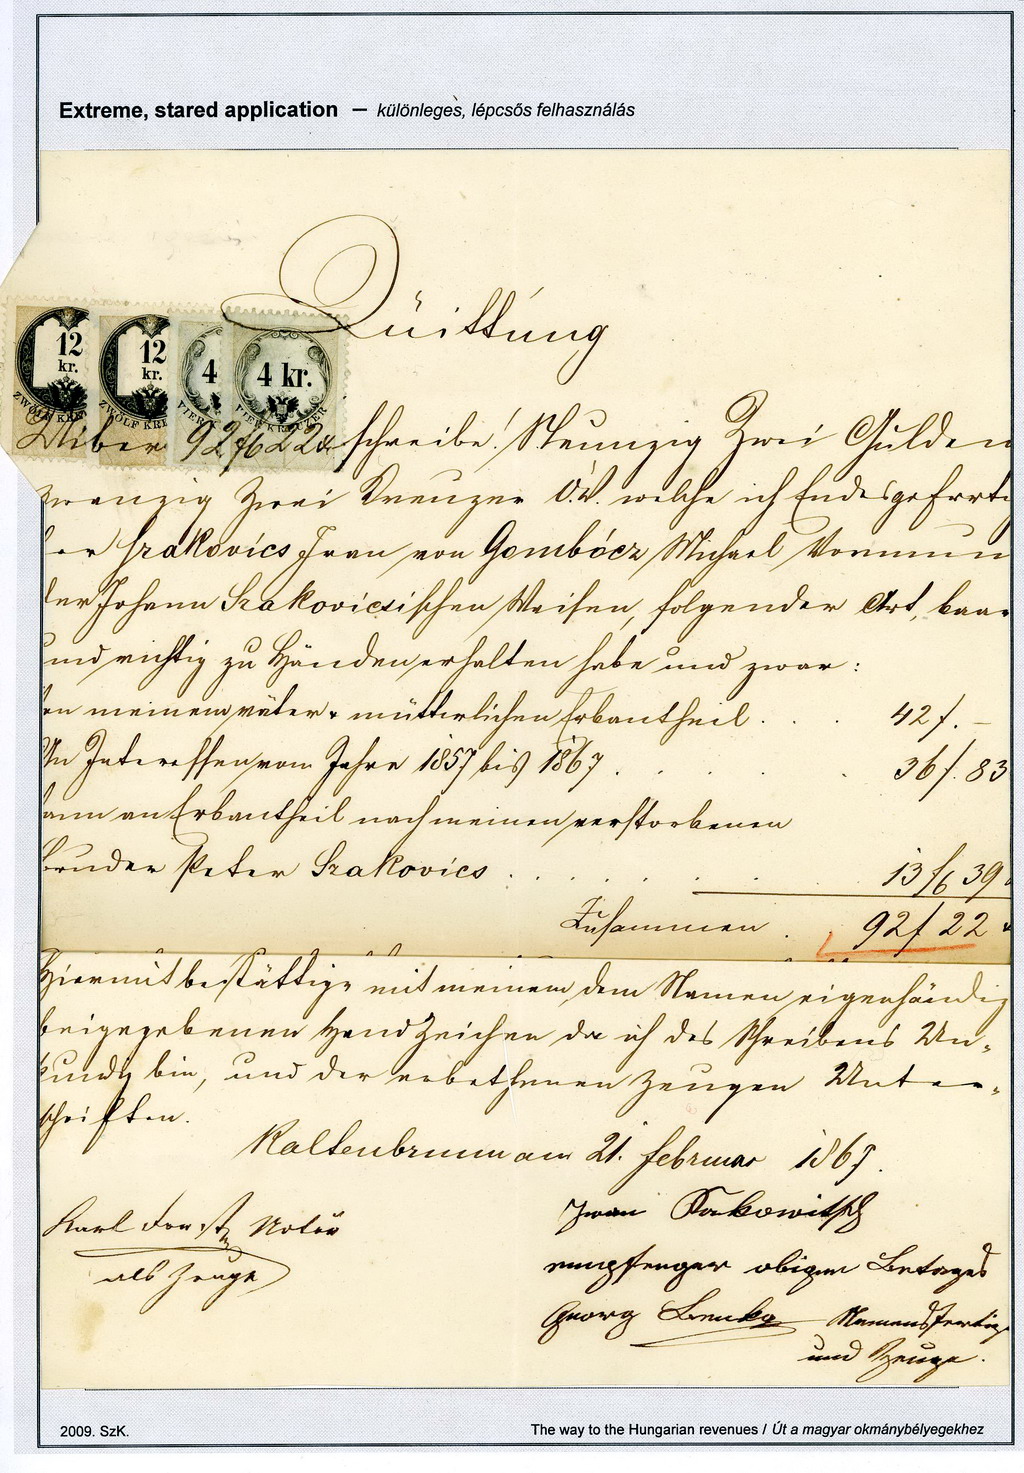 Extreme, stared application – különleges, lépcsős felhasználás
Quittung
12 kr. 12 kr. 4 4 kr.
ZWÖLF KRE ZWÖLF KRE VIER VIER KREUZER
Über 92 f 22 x schreibe! Neunzig Zwei Gulden
zwanzig Zwei Kreuzer Ö.W. welche ich Endesgefert
Szakovics Ivan von Gombócz Michael Vormun
der Johann Szakovicsischen Waisen, folgender Art, baar
und richtig zu Händen erhalten habe und zwar:
an meinem väter- mütterlichen Erbantheil . . . 42 f. –
An Interessen vom Jahre 1857 bis 1867 . . . . 36 f. 83
dann an Erbantheil nach meinen verstorbenen
Bruder Peter Szakovics . . . . . . 13 f 39
Zusammen . . 92 f 22 x
Hiermit bestättige mit meinem dem Namen eigenhändig
beigegebenen Handzeichen da ich des Schreibens Un-
kundig bin, und der erbethenen Zeugen Unter-
schriften.
Kaltenbrunn am 21. februar 1867.
Karl Notär
als Zeuge
Ivan Sakowitsch
empfenger obigen Betrages
Georg Namensfertiger
und Zeuge.
2009. SzK.
The way to the Hungarian revenues / Út a magyar okmánybélyegekhez